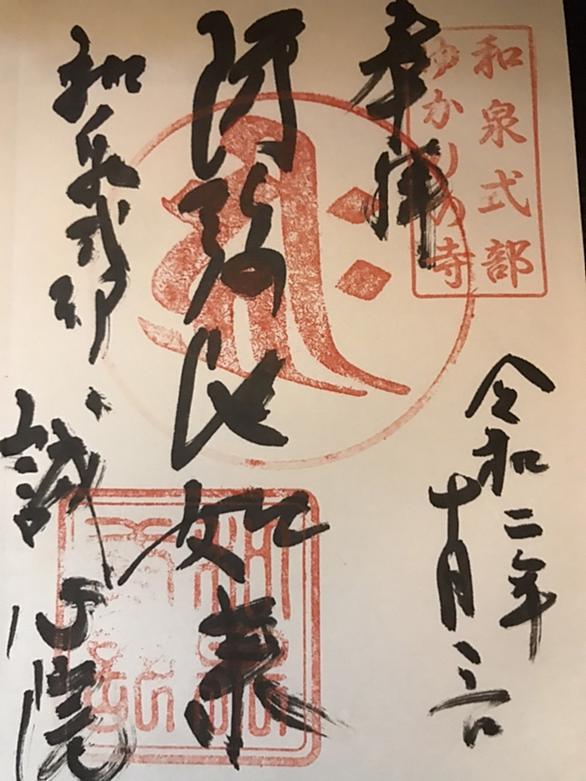 和泉式部
ゆかりの寺
奉拝
令和二年
十月三日
阿弥陀如来
和泉式部
誠心院